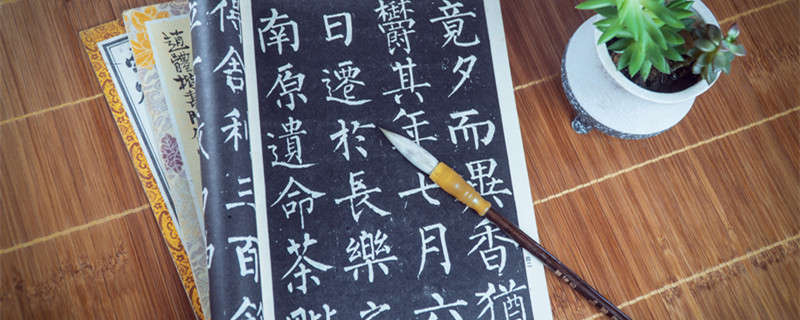 竟夕而異香猶
鬱其年七月六
日遷於長樂之
南原遺命茶
得舍利三百餘